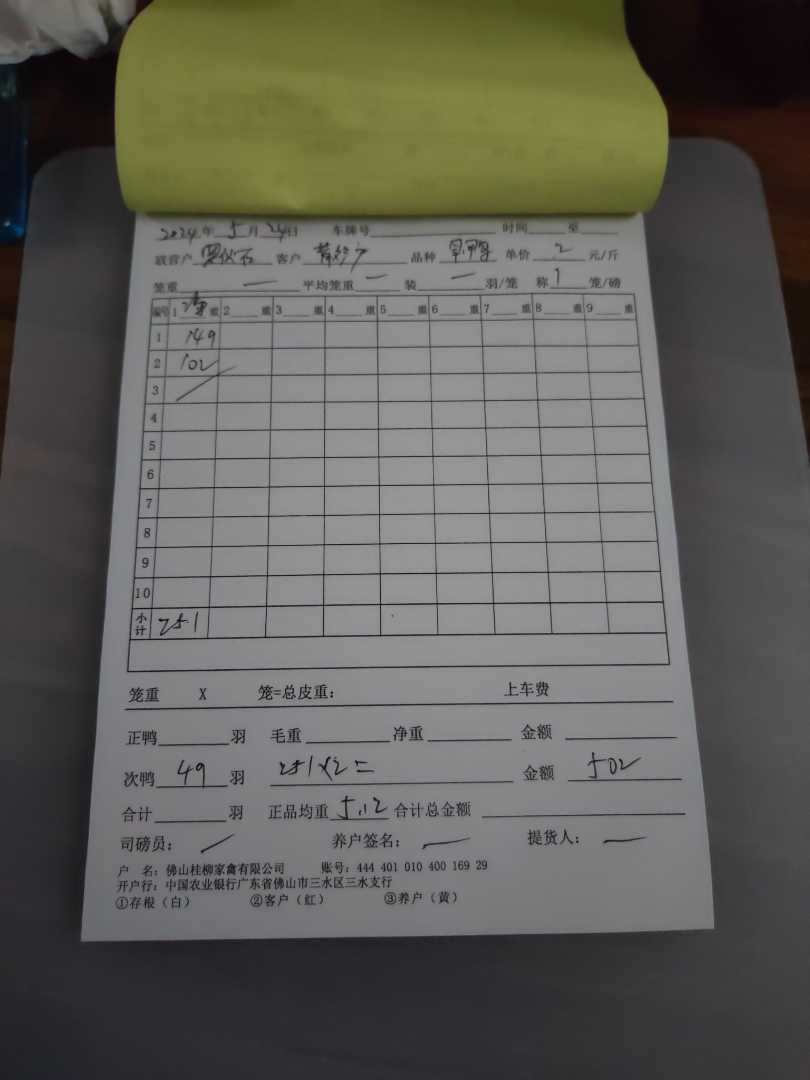 2024年 5月 24日 车牌号 时间 至
联营户 客户 品种 旱鸭 单价 2 元/斤
笼重 一 平均笼重 一 装 一 羽/笼 称 1 笼/磅
编号 1 净重 2 重 3 重 4 重 5 重 6 重 7 重 8 重 9 重
1 149
2 102
3
4
5
6
7
8
9
10
小计 251
笼重 X 笼=总皮重: 上车费
正鸭 羽 毛重 净重 金额
次鸭 49 羽 251×2= 金额 502
合计 羽 正品均重 5.12 合计总金额
司磅员: 养户签名: 提货人:
户 名: 佛山桂柳家禽有限公司 账号: 444 401 010 400 169 29
开户行: 中国农业银行广东省佛山市三水区三水支行
①存根(白) ②客户(红) ③养户(黄)